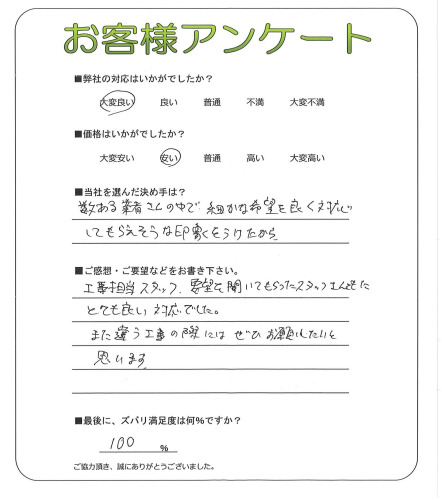 お客様アンケート
■弊社の対応はいかがでしたか？
大変良い 良い 普通 不満 大変不満
■価格はいかがでしたか？
大変安い 安い 普通 高い 大変高い
■当社を選んだ決め手は？
数ある業者さんの中で細かな希望を良く対応
してもらえそうな印象をうけたから
■ご感想・ご要望などをお書き下さい。
工事担当スタッフ、要望を聞いてもらったスタッフさんともに
とても良い対応でした。
また違う工事の際にはぜひお願いしたいと
思います
■最後に、ズバリ満足度は何%ですか？
100 %
ご協力頂き、誠にありがとうございました。